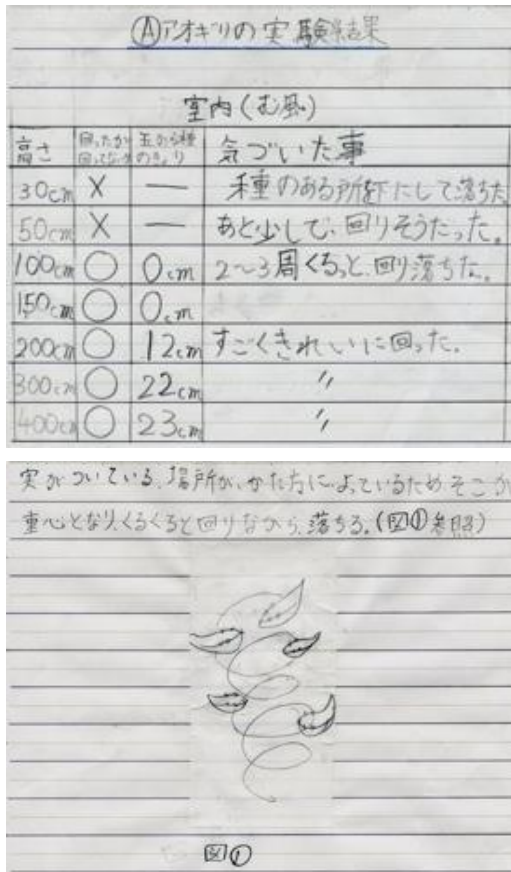 Ⓐアオギリの実験結果
室内(む風)
高さ 回ったか回ってないか 玉から種のきょり 気づいた事
30cm × — 種のある所を下にして落ちた
50cm × — あと少しで、回りそうだった。
100cm ○ 0cm 2〜3周くるっと、回り落ちた。
150cm ○ 0cm
200cm ○ 12cm すごくきれいに回った。
300cm ○ 22cm 〃
400cm ○ 23cm 〃
実がついている、場所が、かた方に、よっているためそこが
重心となり、くるくると回りながら、落ちる。(図①参照)
図①